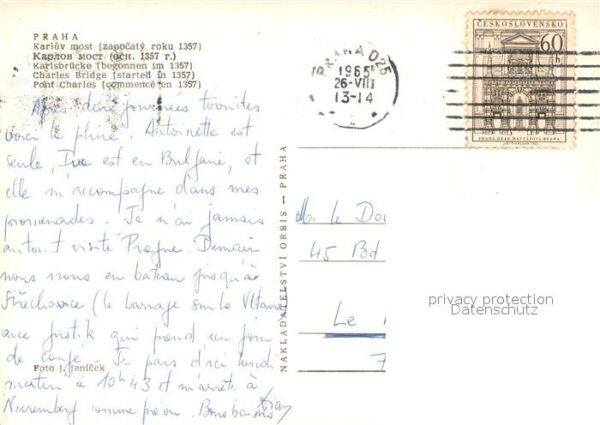 PRAHA
Karlův most (započatý roku 1357)
Карлов мост (осн. 1357 г.)
Karlsbrücke (begonnen im 1357)
Charles Bridge (started in 1357)
Pont Charles (commencé en 1357)
Après deux journées torrides
voici la pluie. Antoinette est
seule, Iva est en Bulgarie, et
elle m'accompagne dans mes
promenades. Je n'ai jamais
autant visité Prague. Demain
nous irons en bateau jusqu'à
Štěchovice (le barrage sur la Vltava)
avec qui prend un jour
de congé. Je pars d'ici lundi
matin à 10h43 et m'arrête à
Nuremberg comme prévu. Bons baisers
Foto J. Jeníček
NAKLADATELSTVÍ ORBIS — PRAHA
PRAHA 025
1965
26-VIII
13-14
ČESKOSLOVENSKO
60 h
M. le Doc
45 Bd
Le
7
privacy protection
Datenschutz